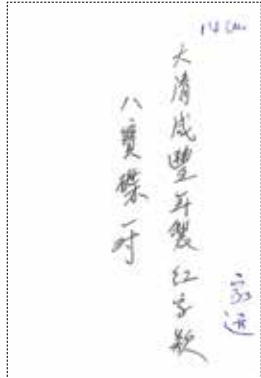 14 cm
大清咸豐年製紅字款
八寶碟一对
家遠